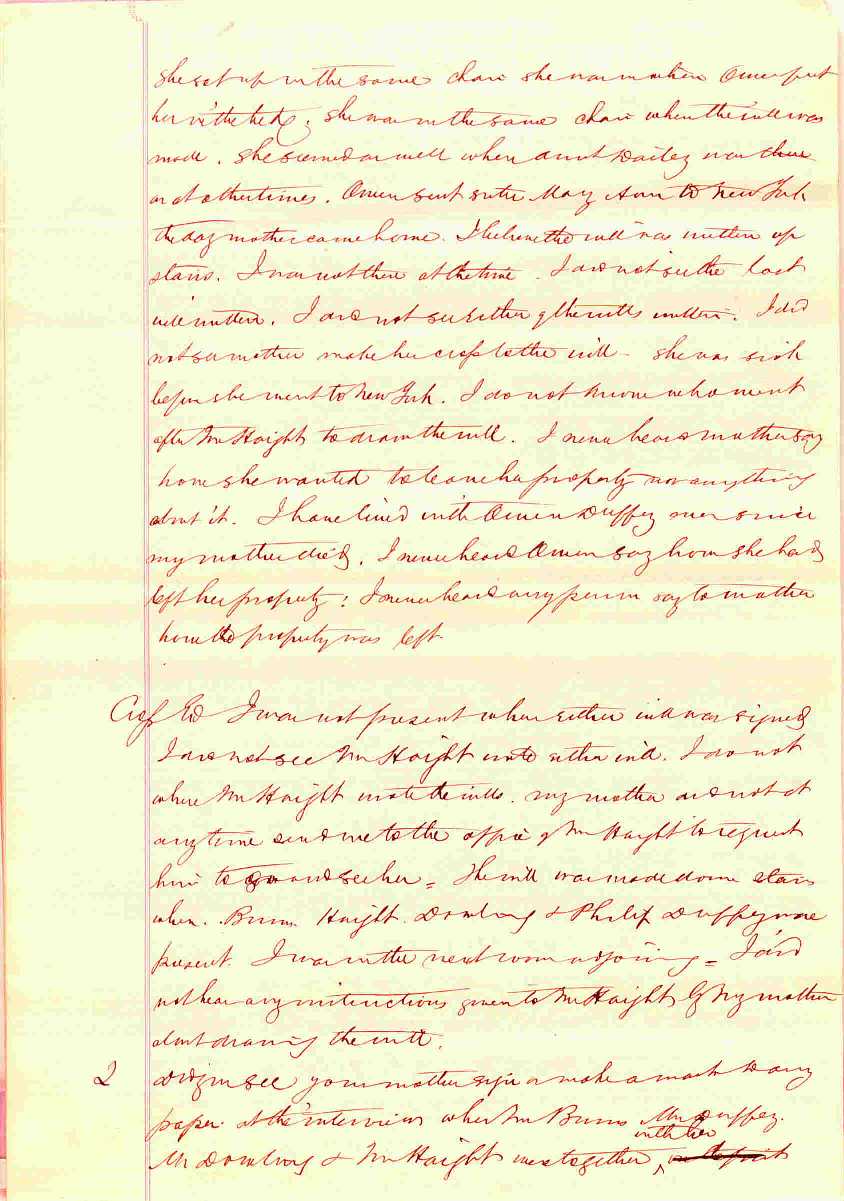 she sat up in the same chair she was in when Owen put
her in the bed; she was in the same chair when the will was
made. she seemed as well when aunt Dailey was there
as at other times. Owen sent sister Mary Ann to New York
the day mother came home. I believe the will was written up
stairs. I was not there at the time. I did not see the last
will written. I did not see either of the wills written. I did
not see mother make her cross to the will – she was sick
before she went to New York. I do not know who went
after Mr Haight to draw the will. I never heard mother say
how she wanted to leave her property nor anything
about it. I have lived with Owen Duffey ever since
my mother died. I never heard Owen say how she had
left her property: I never heard any person say to mother
how the property was left
Cross Exd I was not present when either will was signed
I did not see Mr Haight write either will. I do not
where Mr Haight wrote the wills. my mother did not at
any time send me to the office of Mr Haight to request
him to go and see her = The will was made down stairs
when Burns Haight Dowling & Philip Duffey were
present. I was in the next room adjoining = I did
not hear any instructions given to Mr Haight by my mother
about drawing the will.
2 Did you see your mother sign or make a mark to any
paper at the interview when Mr Burns Mr Duffey.
with her
Mr Dowling & Mr Haight were together,